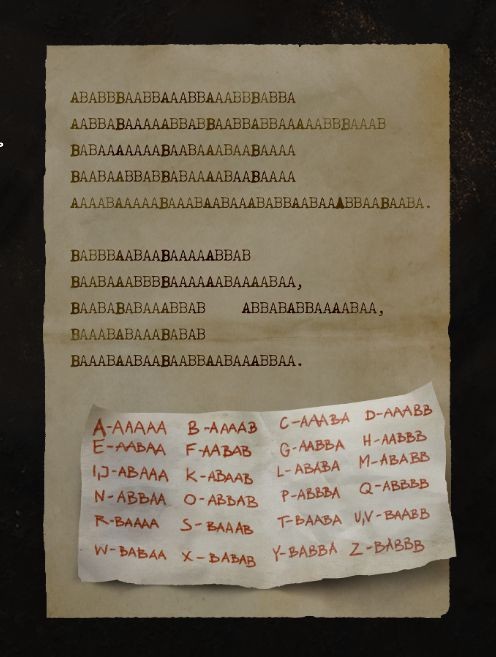 ABABBBAABBAAABBAAABBBABBA
AABBABAAAAABBABBAABBABBAAAAABBBAAAB
BABAAAAAAABAABAAABAABAAAA
BAABAABBABBABAAAABAABAAAA
AAAABAAAAABAAABAABAAABABBAABAAABBAABAABA.
BABBBAABAABAAAAABBAB
BAABAAABBBBAAAAAABAAAABAA,
BAABABABAAABBAB ABBABABBAAAABAA,
BAAABABAAABABAB
BAAABAABAABAABBAABAAABBAA.
A-AAAAA B-AAAAB C-AAABA D-AAABB
E-AABAA F-AABAB G-AABBA H-AABBB
I,J-ABAAA K-ABAAB L-ABABA M-ABABB
N-ABBAA O-ABBAB P-ABBBA Q-ABBBB
R-BAAAA S-BAAAB T-BAABA U,V-BAABB
W-BABAA X-BABAB Y-BABBA Z-BABBB